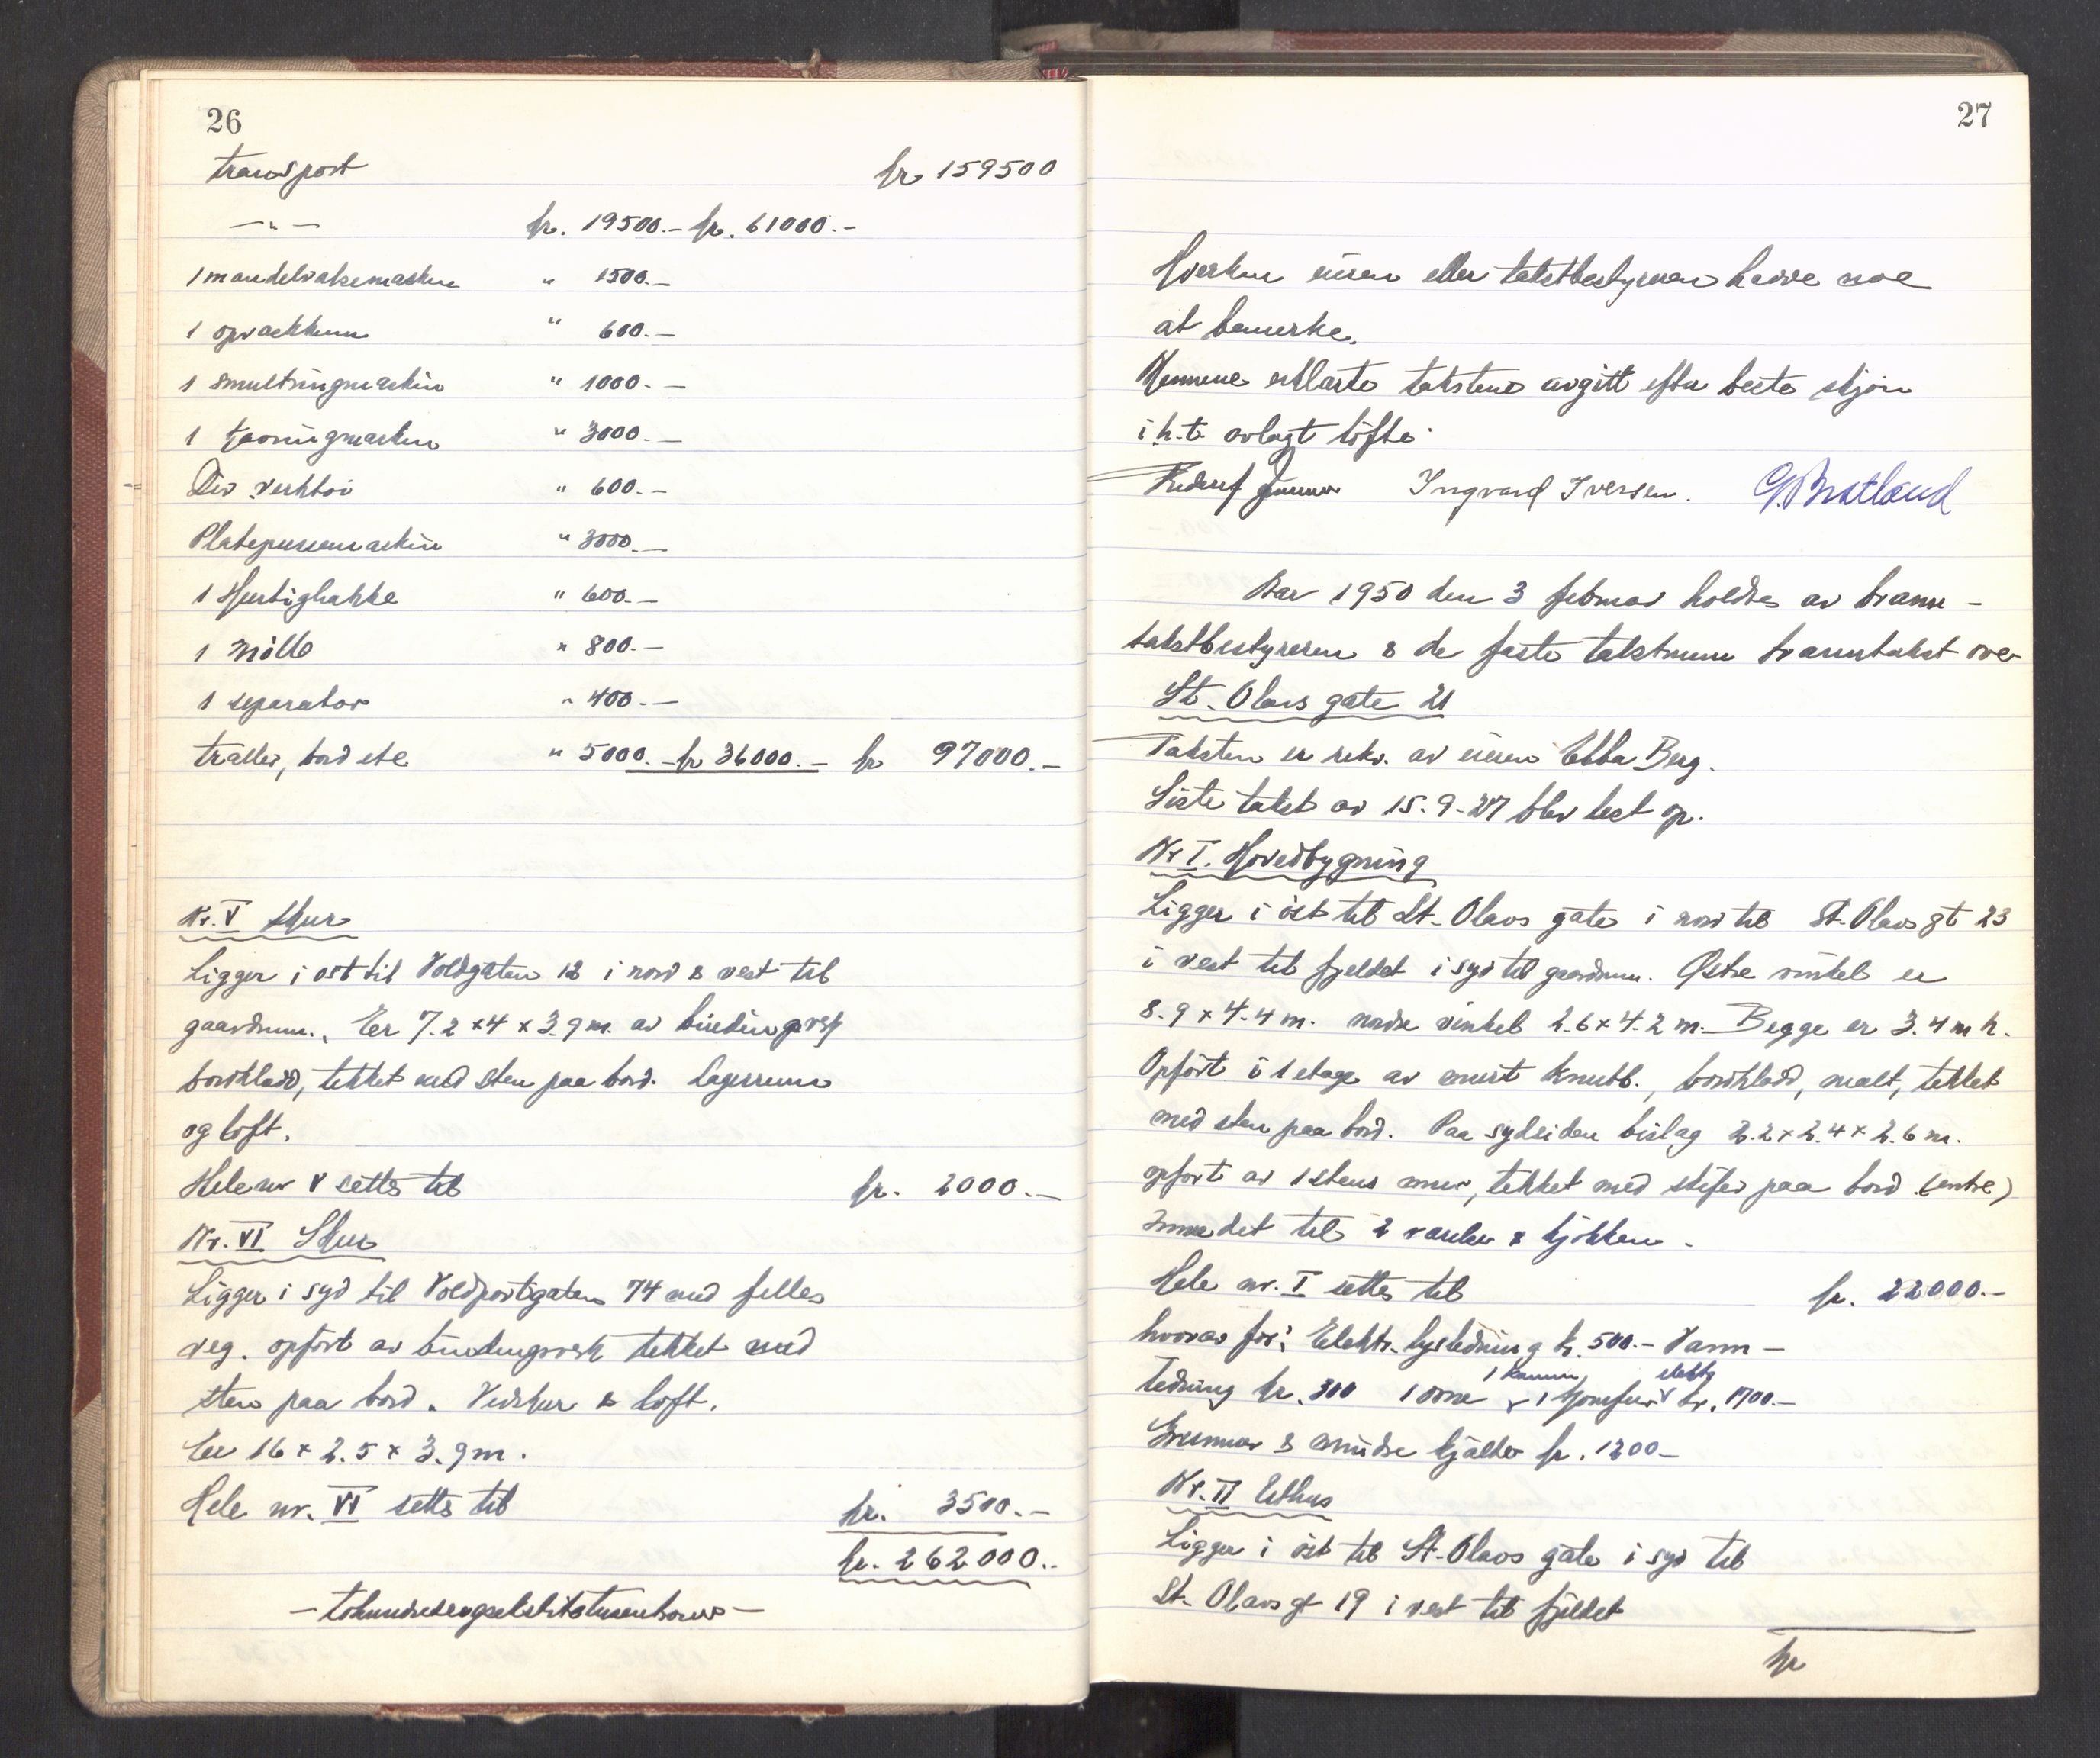 26
transport kr. 159500
—„— kr. 19500.— kr. 61000.—
1 mandelvalsemaskin „ 1500.—
1 opvaskkum „ 600.—
1 smultringmaskin „ 1000.—
1 maskin „ 3000.—
Div verktöi „ 600.—
Platepussemaskin „ 3000.—
1 Hurtighakke „ 600.—
1 Mölle „ 800.—
1 separator „ 400.—
traller, bord etc „ 5000.— kr 36000.— kr 97000.—
Nr. V Skur
Ligger i ost til Voldgaten 12 i nord & vest til
gaardrum., Er 7.2 x 4 x 3.9 m. av bindingsverk
bordkladd, tekket med sten paa bord. Lagerrum
og loft.
Hele nr V settes til kr. 2000.—
Nr. VI Skur
Ligger i syd til Voldportgaten 74 med felles
veg. opfört av bindingsverk tekket med
sten paa bord. Vedskur & loft.
Er 16 x 2.5 x 3.9 m.
Hele nr. VI settes til kr. 3500.—
kr. 262000.—
— tohundredeogsekstitotusenkroner —
27
Hverken eieren eller takstbestyreren havde noe
at bemerke.
Mennene erklærte taksten avgitt efter beste skjön
i h.t. avlagt löfte.
Ingvard Iversen. G. Bratland
Aar 1950 den 3 februar holdtes av brann-
takstbestyreren & de faste takstmenn branntakst over
St. Olavs gate 21
Taksten er rekv. av eieren Ebba Berg.
Siste takst av 15.9-27 blev lest op.
Nr I. Hovedbygning
Ligger i öst til St. Olavs gate i nord til St. Olavs gt 23
i vest til fjeldet i syd til gaardrum. Østre vinkel er
8.9 x 4.4 m. nordre vinkel 2.6 x 4.2 m. Begge er 3.4 m h.
Opfört i 1 etage av murt knubb., bordkladd, malt, tekket
med sten paa bord. Paa sydsiden bislag 2.2 x 2.4 x 2.6 m.
opfört av 1 stens mur, tekket med skifer paa bord. (entre)
Innredet til 2 varelser & kjökken.
Hele nr. I settes til kr. 22000.—
hvorav for: Elektr. lysledning kr. 500.— Vann-
ledning kr. 300 1 ovn 1 kamin & 1 komfur elektr kr. 1700.—
Grunnmur & mindre kjælder kr. 1200—
Nr. II Uthus
Ligger i öst til St. Olavs gate i syd til
St. Olavs gt 19 i vest til fjeldet
kr